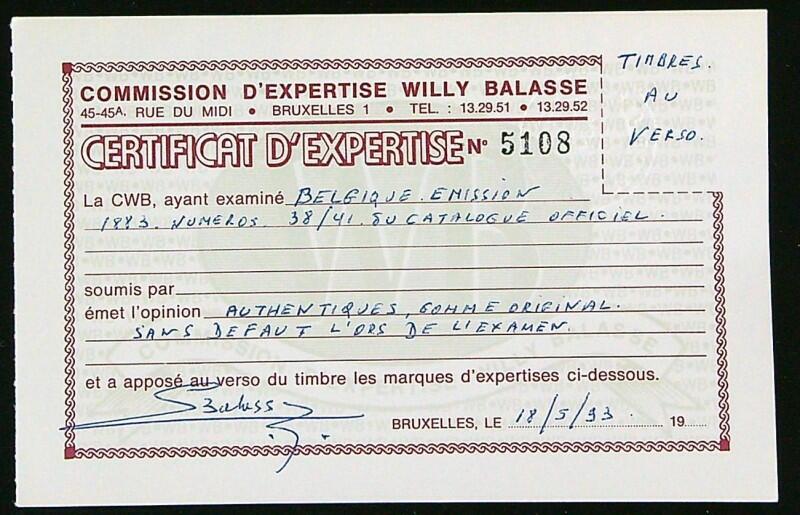 TIMBRES.
AU
VERSO.
COMMISSION D'EXPERTISE WILLY BALASSE
45-45A. RUE DU MIDI • BRUXELLES 1 • TEL. : 13.29.51 • 13.29.52
CERTIFICAT D'EXPERTISE N° 5108
La CWB, ayant examiné BELGIQUE. EMISSION
1883. NUMEROS. 38/41. DU CATALOGUE OFFICIEL.
soumis par
émet l'opinion AUTHENTIQUES, GOMME ORIGINAL.
SANS DEFAUT L'ORS DE L'EXAMEN.
et a apposé au verso du timbre les marques d'expertises ci-dessous.
Balasse
BRUXELLES, LE 18/5/93. 19
COMMISSION D'EXPERTISE WILLY BALASSE